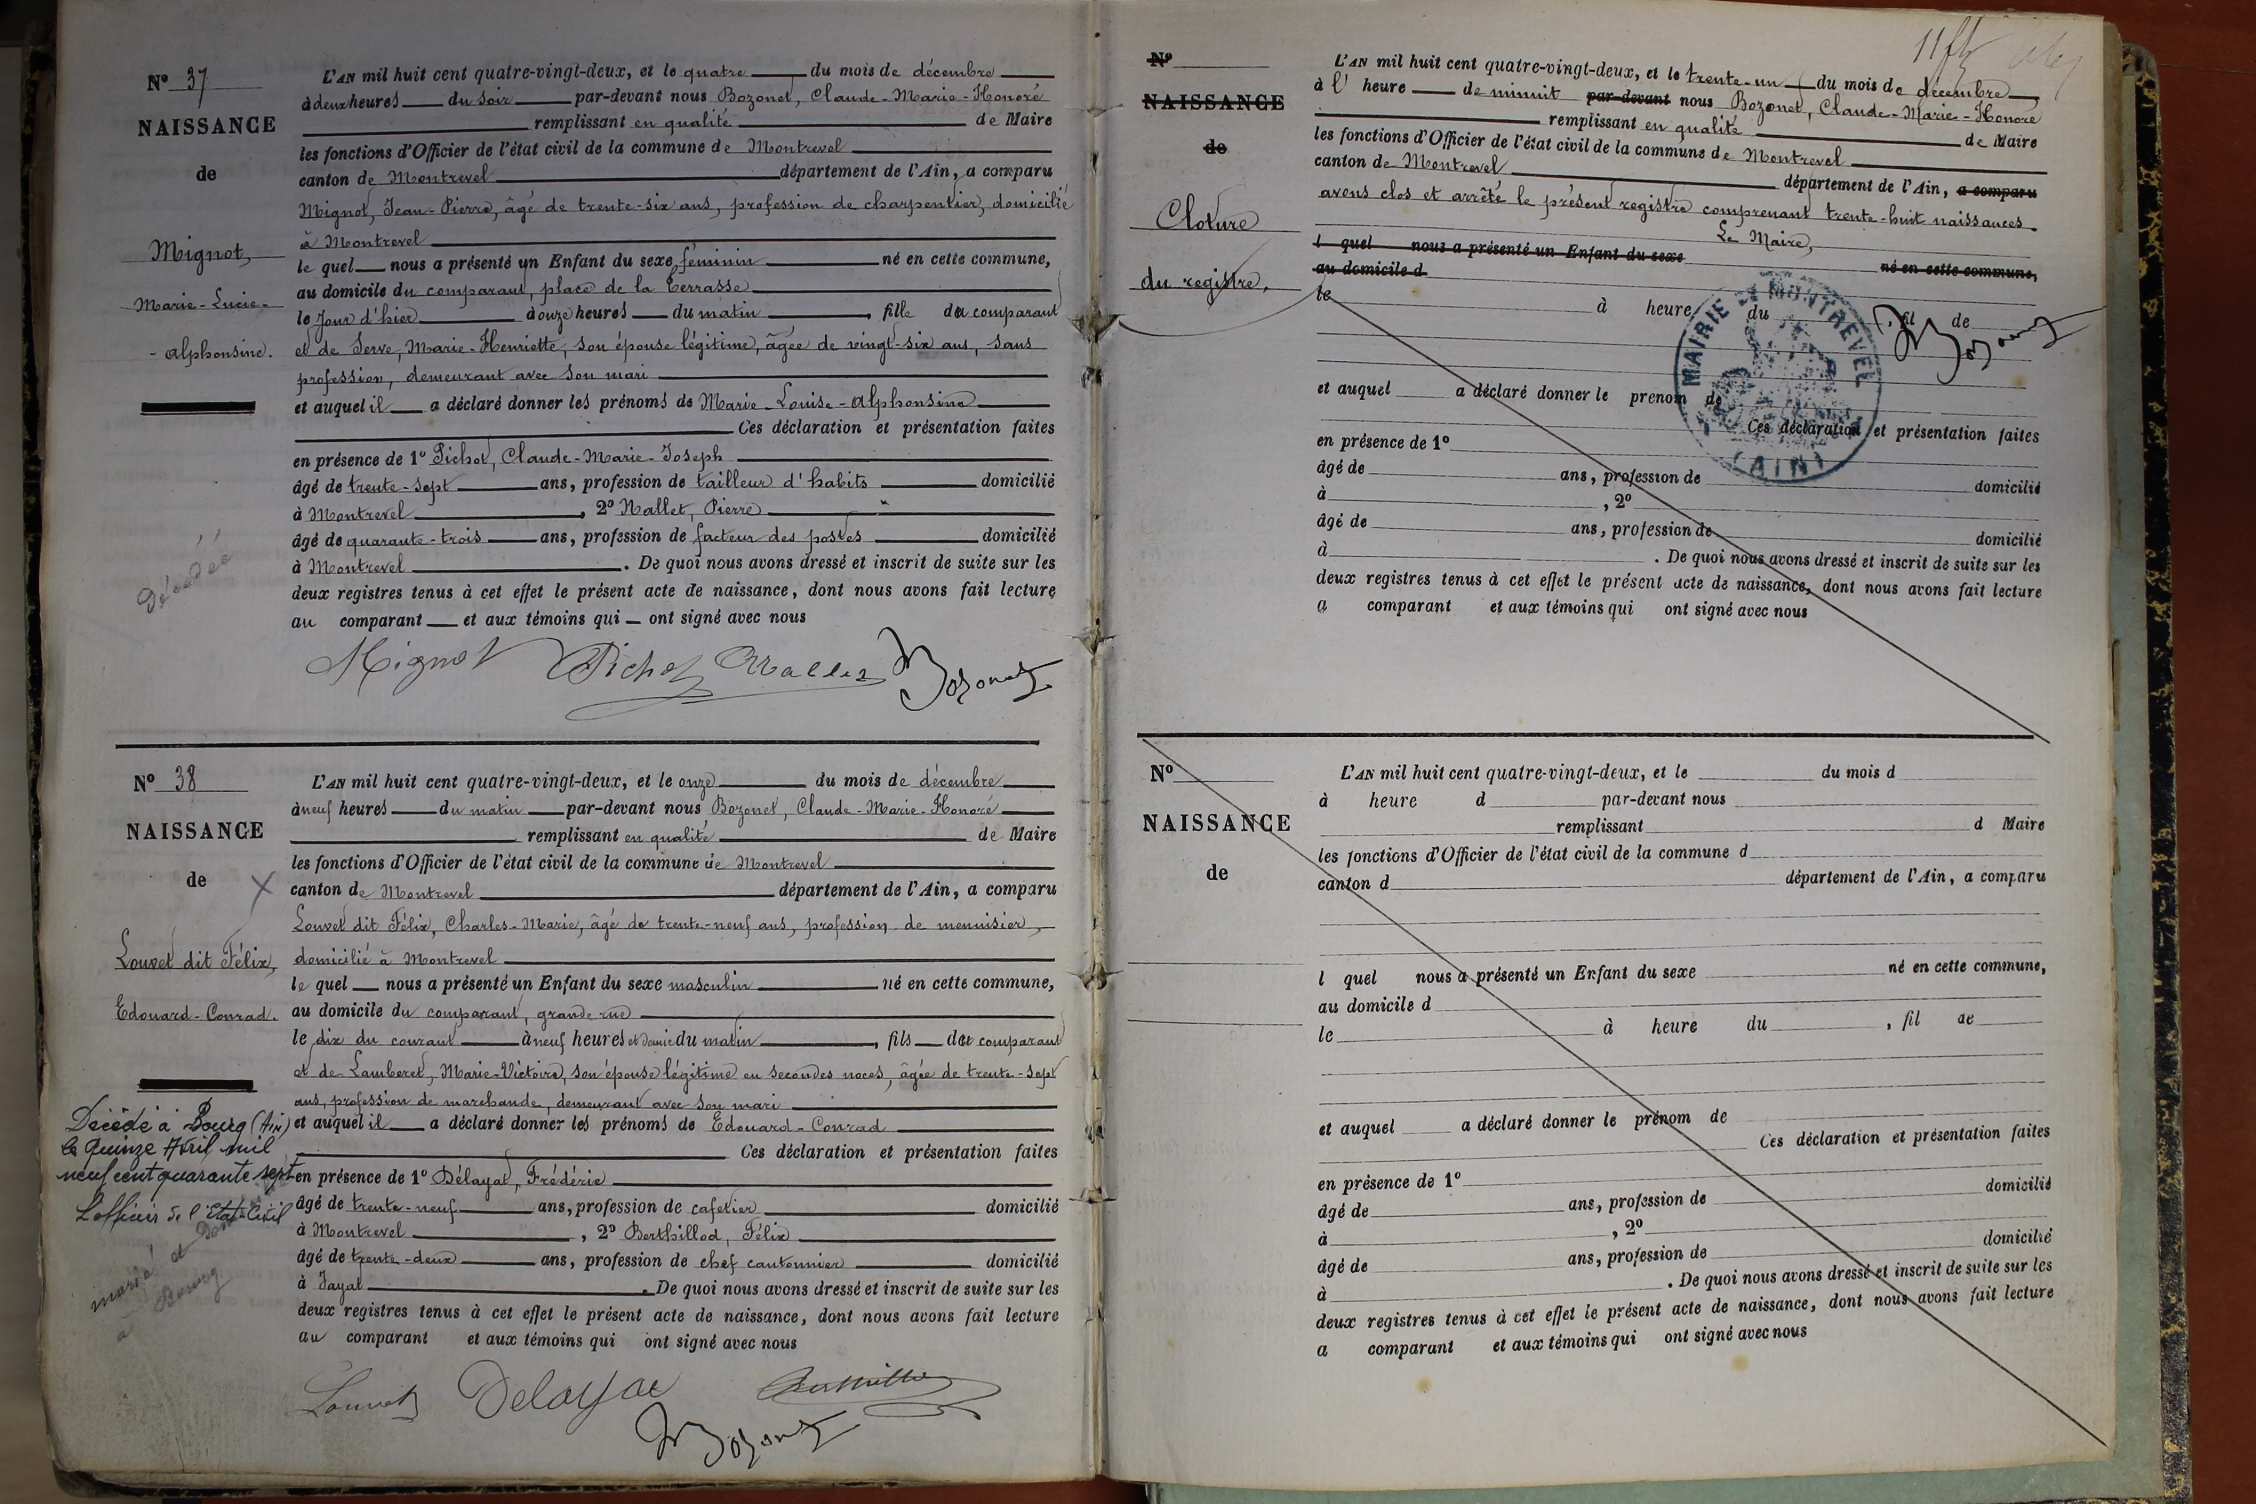 N° 37
NAISSANCE
de
Mignot,
Marie-Lucie-
-Alphonsine.
Décédée
L'AN mil huit cent quatre-vingt-deux, et le quatre du mois de décembre
à deux heures du soir par-devant nous Bozonet, Claude-Marie-Honoré
remplissant en qualité de Maire
les fonctions d'Officier de l'état civil de la commune de Montrevel
canton de Montrevel département de l'Ain, a comparu
Mignot, Jean-Pierre, âgé de trente-six ans, profession de charpentier, domicilié
à Montrevel
le quel nous a présenté un Enfant du sexe féminin né en cette commune,
au domicile du comparant, place de la Terrasse
le jour d'hier à onze heures du matin, fille du comparant
et de Serve, Marie-Henriette, son épouse légitime, âgée de vingt-six ans, sans
profession, demeurant avec son mari
et auquel il a déclaré donner les prénoms de Marie-Louise-Alphonsine
Ces déclaration et présentation faites
en présence de 1° Pichot, Claude-Marie-Joseph
âgé de trente-sept ans, profession de tailleur d'habits domicilié
à Montrevel, 2° Nallet, Pierre
âgé de quarante-trois ans, profession de facteur des postes domicilié
à Montrevel. De quoi nous avons dressé et inscrit de suite sur les
deux registres tenus à cet effet le présent acte de naissance, dont nous avons fait lecture
au comparant et aux témoins qui ont signé avec nous
Mignot Pichot Nallet Bozonet
N° 38
NAISSANCE
de
Louvet dit Félix,
Edouard-Conrad.
Décédé à Bourg (Ain)
le Quinze Avril mil
neuf cent quarante sept
L'officier de l'Etat-Civil
marié et
à Bourg
L'AN mil huit cent quatre-vingt-deux, et le onze du mois de décembre
à neuf heures du matin par-devant nous Bozonet, Claude-Marie-Honoré
remplissant en qualité de Maire
les fonctions d'Officier de l'état civil de la commune de Montrevel
canton de Montrevel département de l'Ain, a comparu
Louvet dit Félix, Charles-Marie, âgé de trente-neuf ans, profession de menuisier,
domicilié à Montrevel
le quel nous a présenté un Enfant du sexe masculin né en cette commune,
au domicile du comparant, grande rue
le dix du courant à neuf heures et demie du matin, fils du comparant
et de Lamberet, Marie-Victoire, son épouse légitime en secondes noces, âgée de trente-sept
ans, profession de marchande, demeurant avec son mari
et auquel il a déclaré donner les prénoms de Edouard-Conrad
Ces déclaration et présentation faites
en présence de 1° Délayat, Frédéric
âgé de trente-neuf ans, profession de cafetier domicilié
à Montrevel, 2° Berthillod, Félix
âgé de trente-deux ans, profession de chef cantonnier domicilié
à Jayat. De quoi nous avons dressé et inscrit de suite sur les
deux registres tenus à cet effet le présent acte de naissance, dont nous avons fait lecture
au comparant et aux témoins qui ont signé avec nous
Louvet Delayat Berthillod
Bozonet
N°
NAISSANCE
de
Cloture
du registre,
L'AN mil huit cent quatre-vingt-deux, et le trente-un du mois de décembre
à l' heure de minuit par-devant nous Bozonet, Claude-Marie-Honoré
remplissant en qualité de Maire
les fonctions d'Officier de l'état civil de la commune de Montrevel
canton de Montrevel département de l'Ain, a comparu
avons clos et arrêté le présent registre comprenant trente-huit naissances.
Le Maire,
l quel nous a présenté un Enfant du sexe né en cette commune,
au domicile d
le à heure du, fil de
Bozonet
MAIRIE DE MONTREVEL
(AIN)
et auquel a déclaré donner le prénom de
Ces déclaration et présentation faites
en présence de 1°
âgé de ans, profession de domicilié
à , 2°
âgé de ans, profession de domicilié
à . De quoi nous avons dressé et inscrit de suite sur les
deux registres tenus à cet effet le présent acte de naissance, dont nous avons fait lecture
a comparant et aux témoins qui ont signé avec nous
N°
NAISSANCE
de
L'AN mil huit cent quatre-vingt-deux, et le du mois d
à heure d par-devant nous
remplissant d Maire
les fonctions d'Officier de l'état civil de la commune d
canton d département de l'Ain, a comparu
l quel nous a présenté un Enfant du sexe né en cette commune,
au domicile d
le à heure du , fil de
et auquel a déclaré donner le prénom de
Ces déclaration et présentation faites
en présence de 1°
âgé de ans, profession de domicilié
à , 2°
âgé de ans, profession de domicilié
à . De quoi nous avons dressé et inscrit de suite sur les
deux registres tenus à cet effet le présent acte de naissance, dont nous avons fait lecture
a comparant et aux témoins qui ont signé avec nous